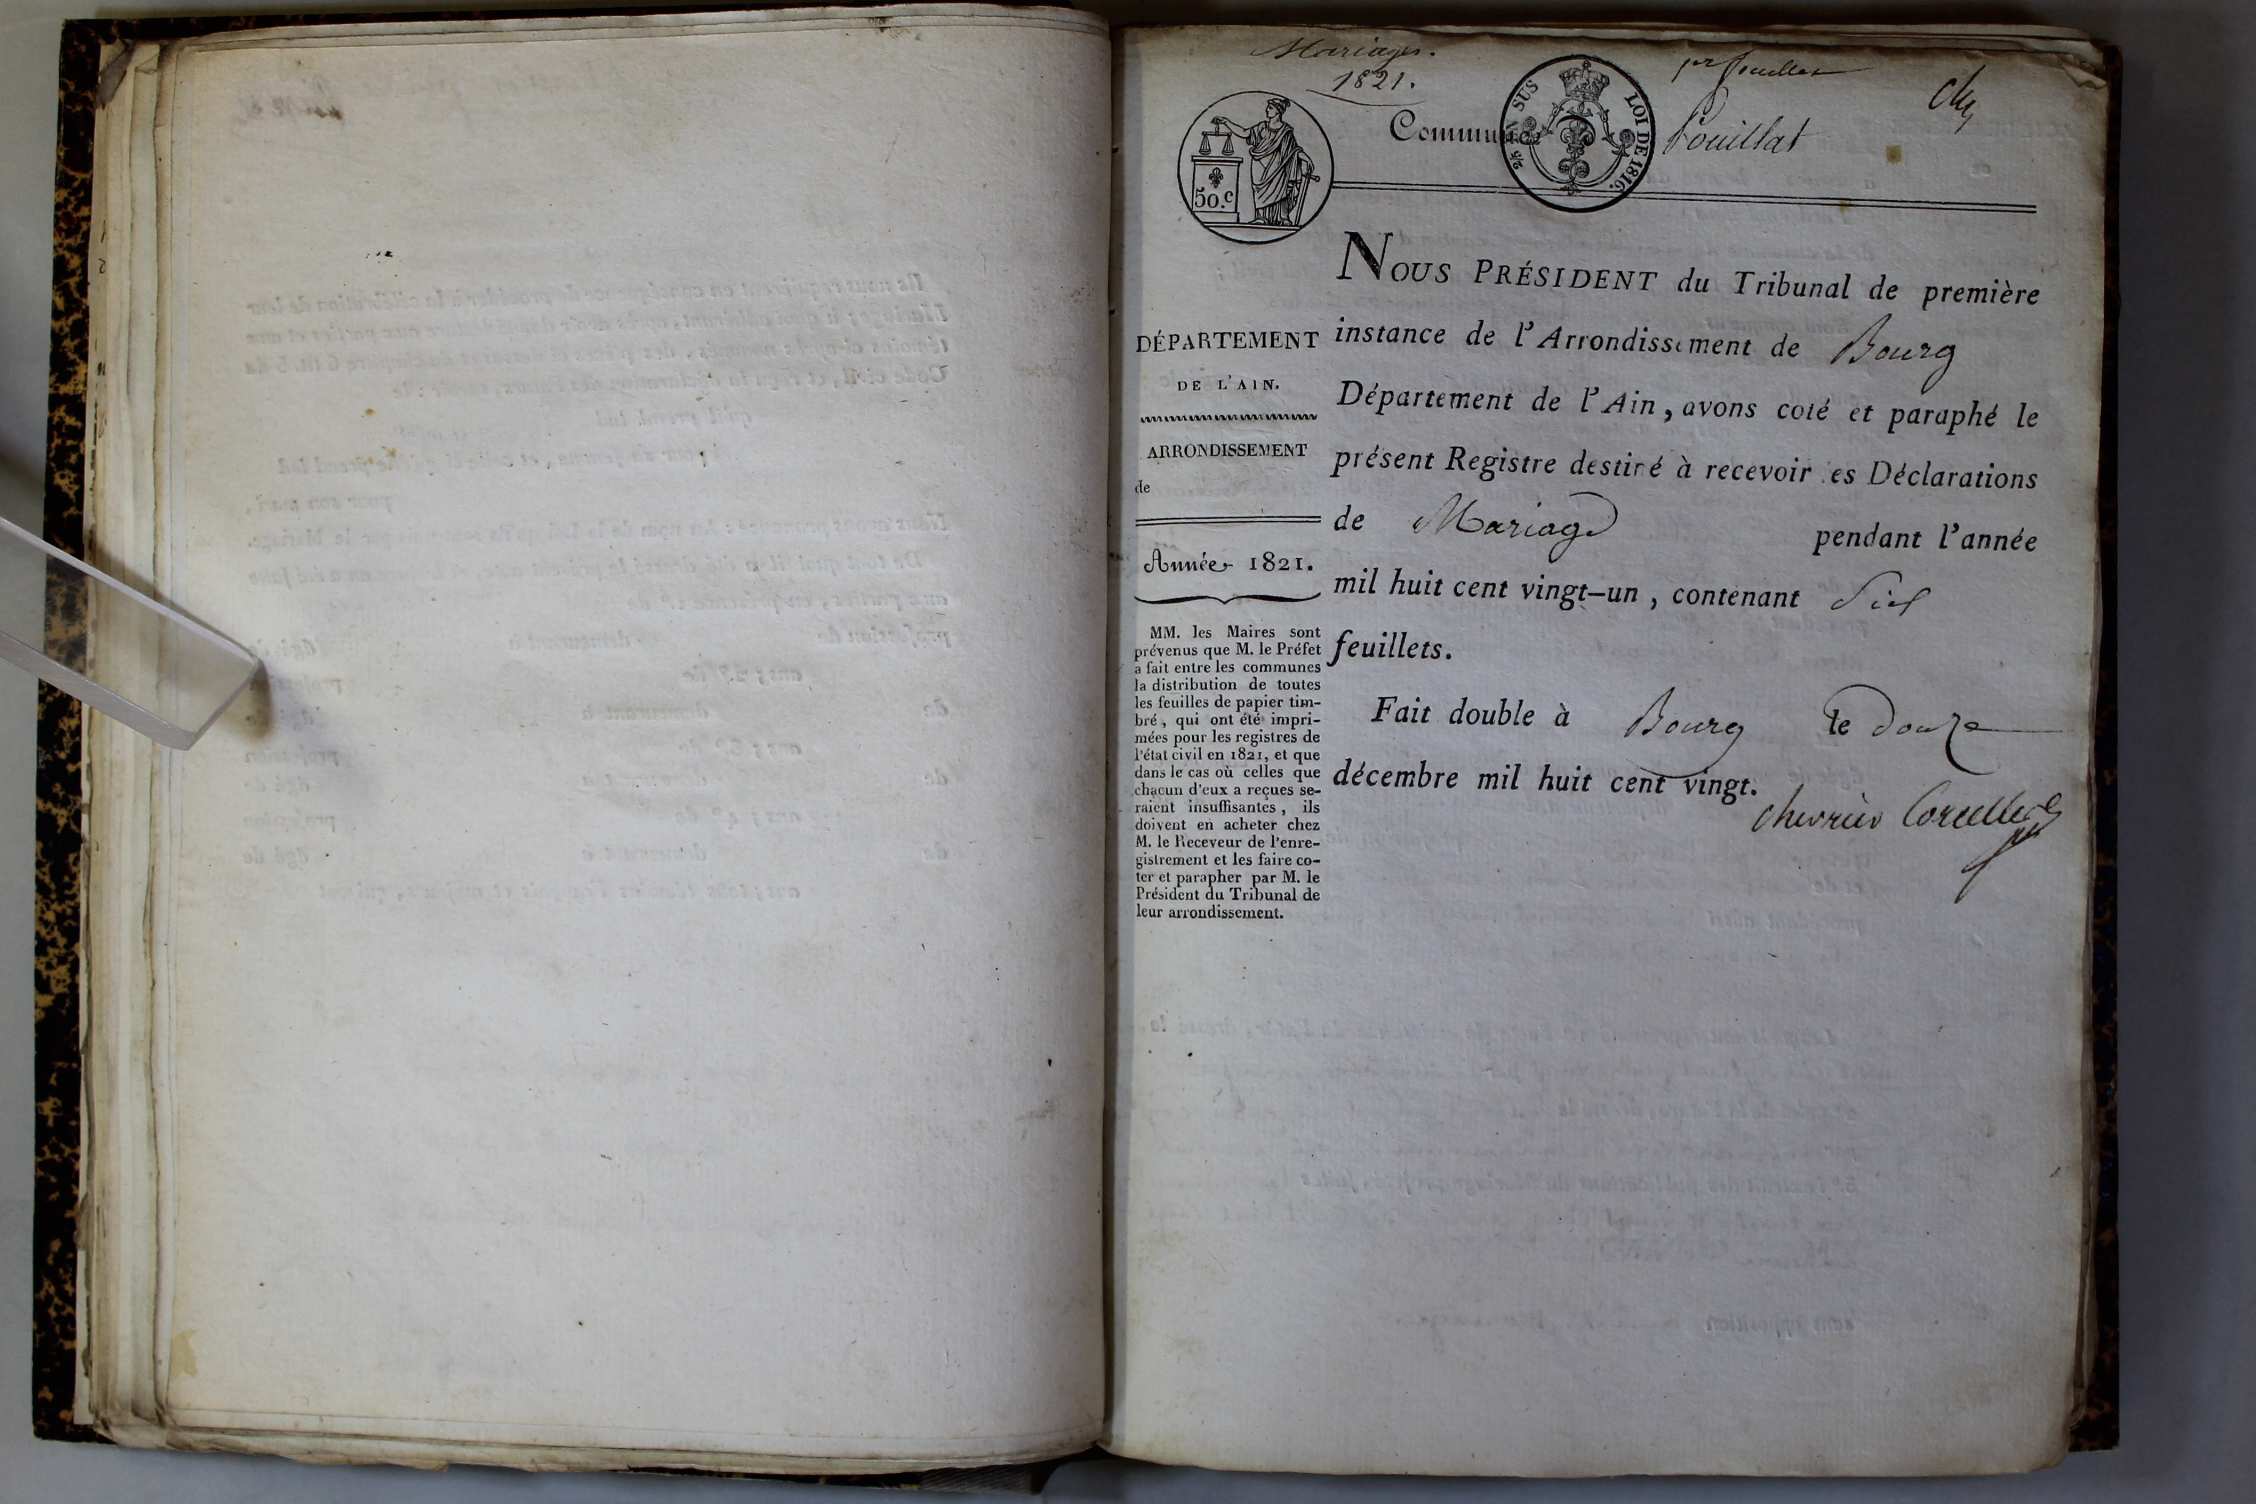 Mariages.
1821.
1er feuillet
Commune Pouillat
50.c
2/5 EN SUS
LOI DE 1816.
NOUS PRÉSIDENT du Tribunal de première
instance de l'Arrondissement de Bourg
Département de l'Ain, avons coté et paraphé le
présent Registre destiné à recevoir les Déclarations
de Mariage pendant l'année
mil huit cent vingt-un, contenant Six
feuillets.
Fait double à Bourg le douze
décembre mil huit cent vingt.
Chevrier Corcelles
DÉPARTEMENT
DE L'AIN.
ARRONDISSEMENT
de
Année 1821.
MM. les Maires sont
prévenus que M. le Préfet
a fait entre les communes
la distribution de toutes
les feuilles de papier tim-
bré, qui ont été impri-
mées pour les registres de
l'état civil en 1821, et que
dans le cas où celles que
chacun d'eux a reçues se-
raient insuffisantes, ils
doivent en acheter chez
M. le Receveur de l'enre-
gistrement et les faire co-
ter et parapher par M. le
Président du Tribunal de
leur arrondissement.